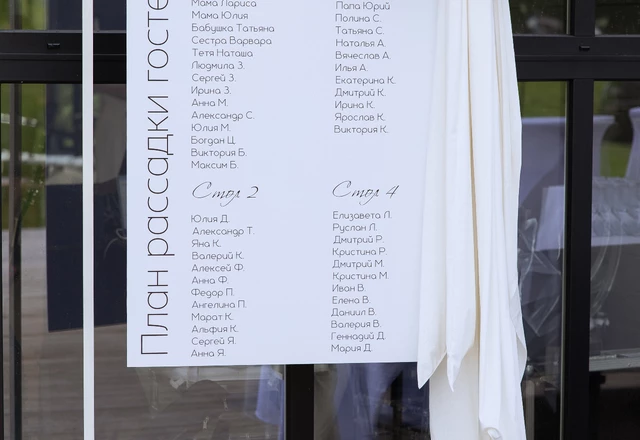 План рассадки госте
Мама Лариса
Мама Юлия
Бабушка Татьяна
Сестра Варвара
Тетя Наташа
Людмила З.
Сергей З.
Ирина З.
Анна М.
Александр С.
Юлия М.
Богдан Ц.
Виктория Б.
Максим Б.
Стол 2
Юлия Д.
Александр Т.
Яна К.
Валерий К.
Алексей Ф.
Анна Ф.
Федор П.
Ангелина П.
Марат К.
Альфия К.
Сергей Я.
Анна Я.
Папа Юрий
Полина С.
Татьяна С.
Наталья А.
Вячеслав А.
Илья А.
Екатерина К.
Дмитрий К.
Ирина К.
Ярослав К.
Виктория К.
Стол 4
Елизавета Л.
Руслан Л.
Дмитрий Р.
Кристина Р.
Дмитрий М.
Кристина М.
Иван В.
Елена В.
Даниил В.
Валерия В.
Геннадий Д.
Мария Д.